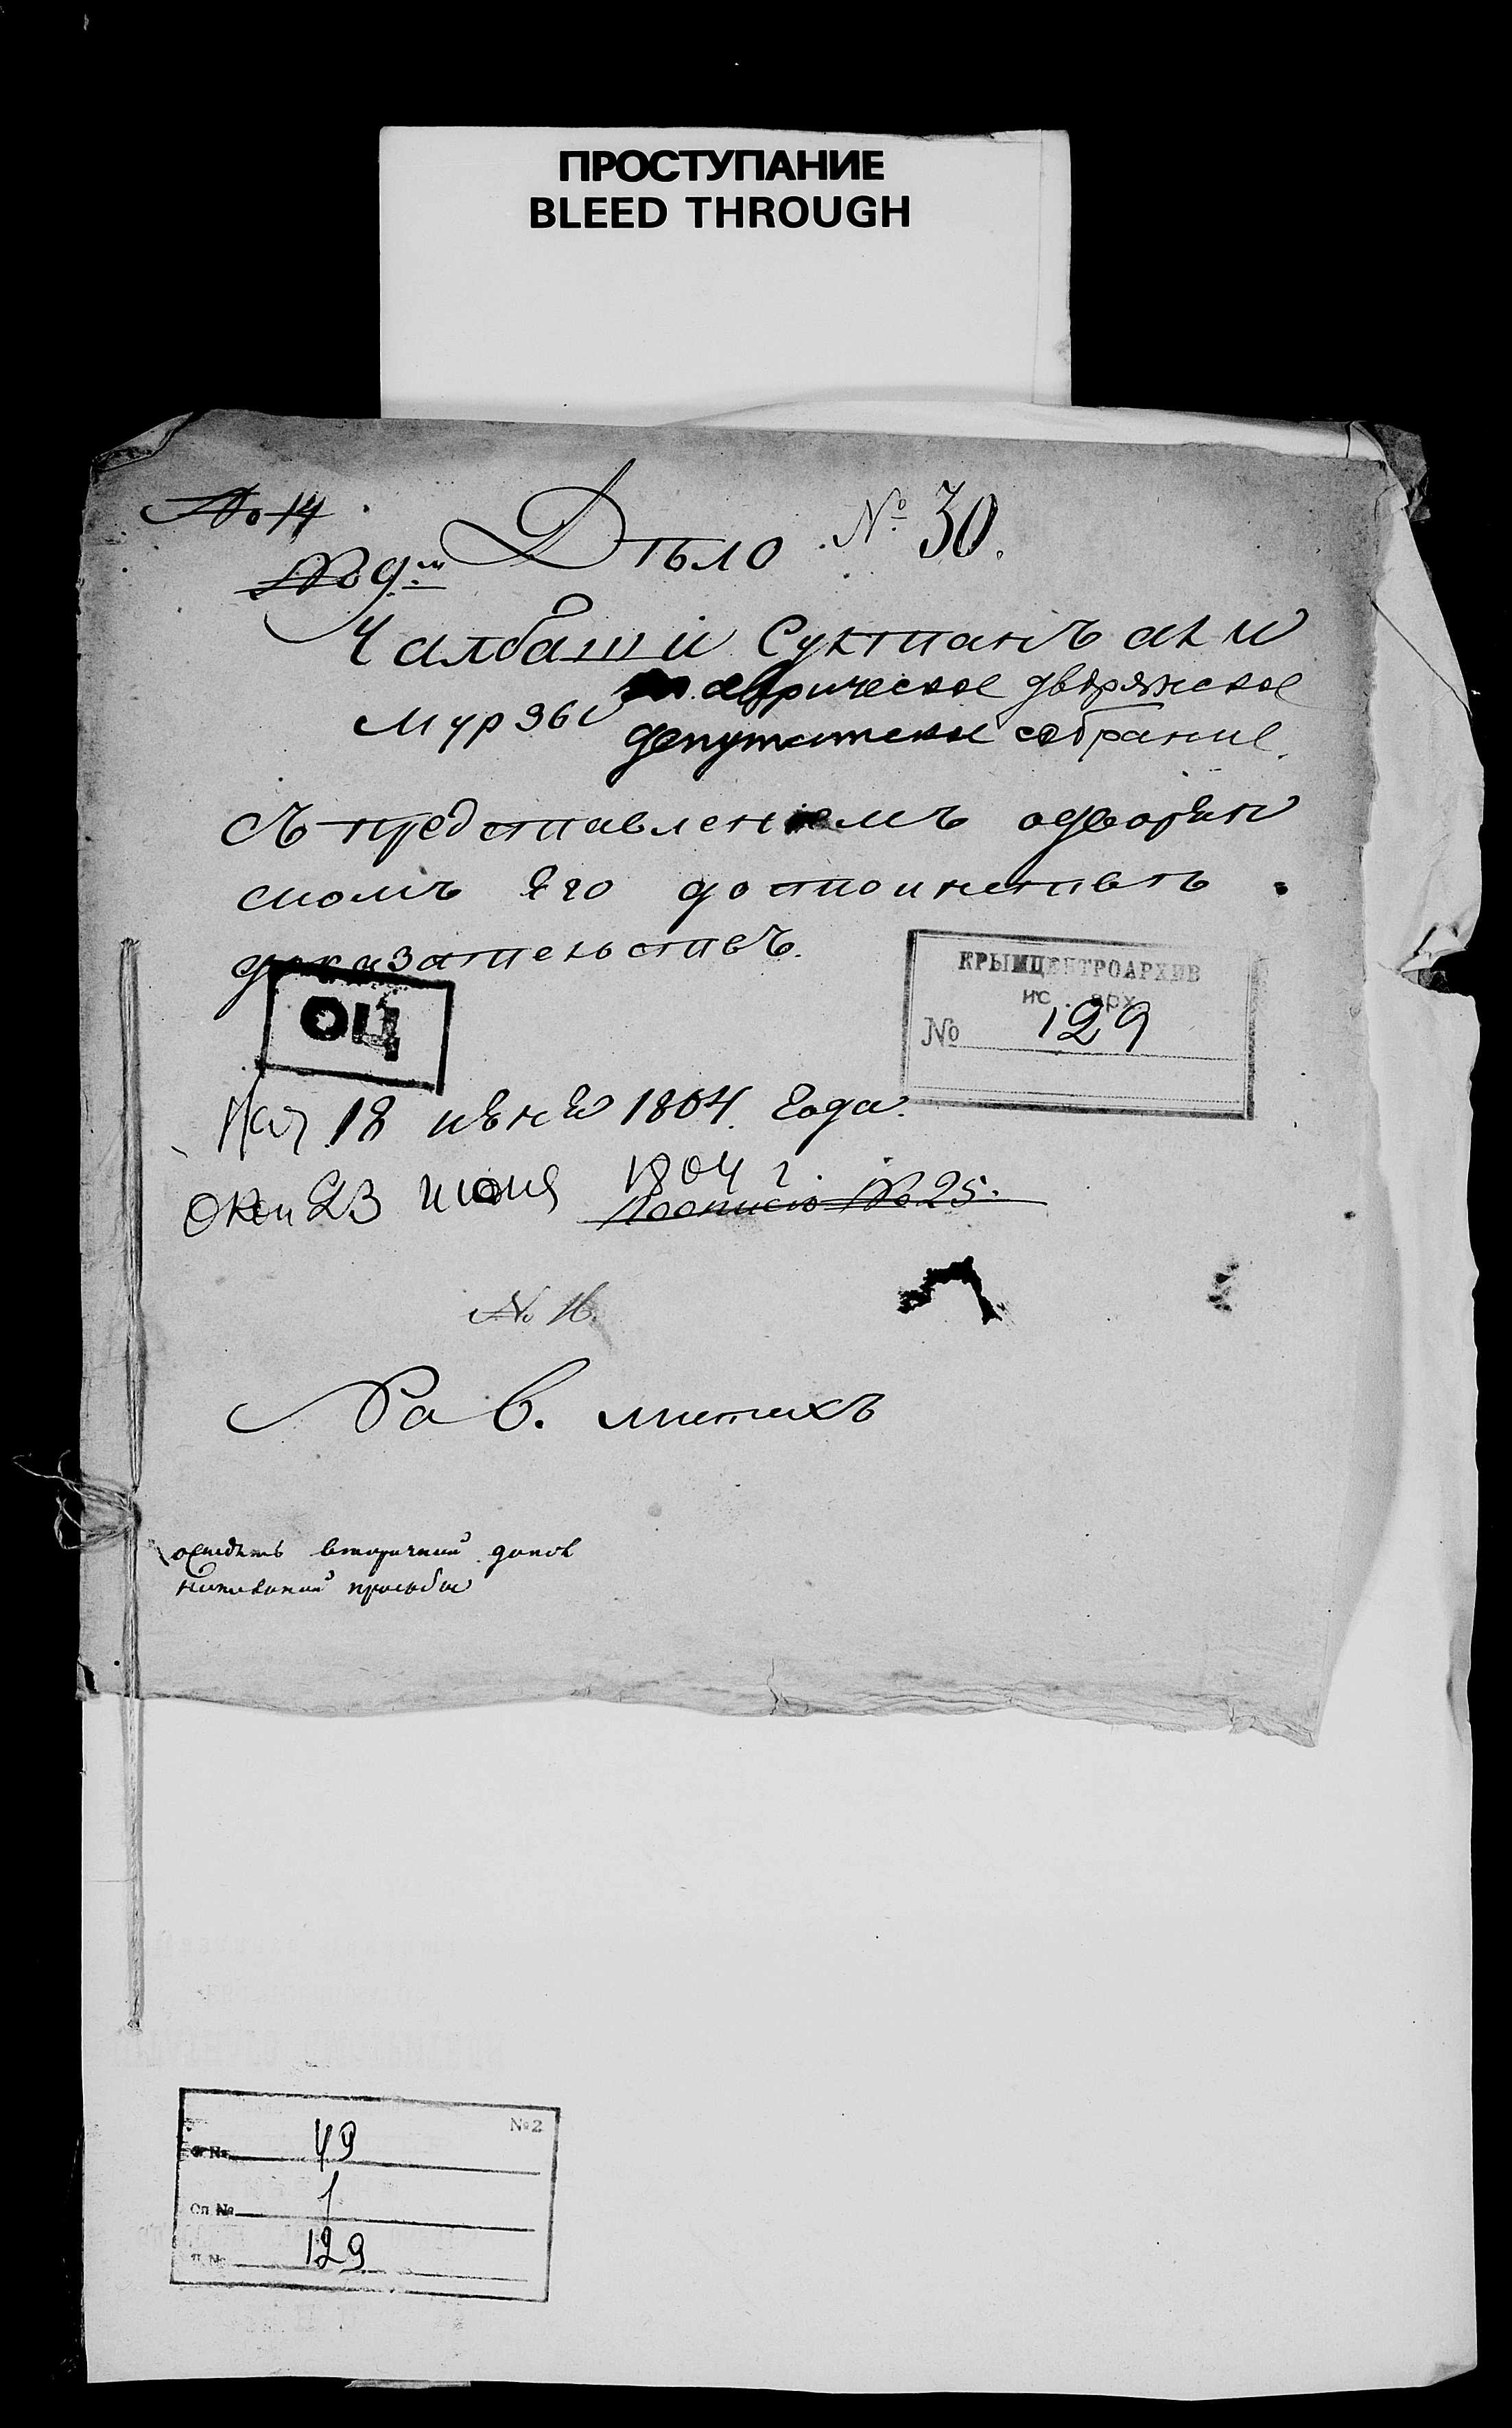 ПРОСТУПАНИЕ
BLEED THROUGH
№ 14
№ 9.м
Дѣло № 30.
Чалбаши Султанъ али
мурзы
таврическое дворянское
депутатское собрание.
съ представлениемъ о дворян
скомъ его достоинствѣ
доказательствъ.
ОЦ
КРЫМЦЕНТРОАРХИВ
ис. арх.
№ 129
Нач 18 июня 1804 года.
Окон 23 июня 1804 г.
По описю № 25.
№ 16.
На 6. листахъ
вторичной допол
нительной просьбы
№ 2
Ф № 49
Оп № 1
Д № 129